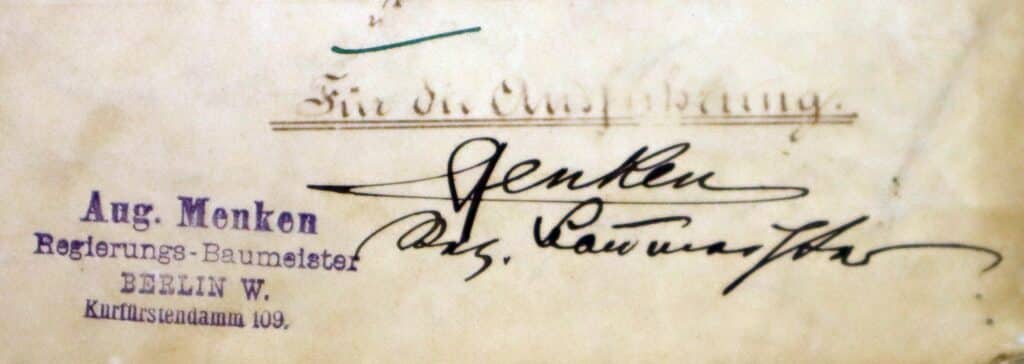 Für die Ausführung.
Menken
Reg. Baumeister
Aug. Menken
Regierungs-Baumeister
BERLIN W.
Kurfürstendamm 109.